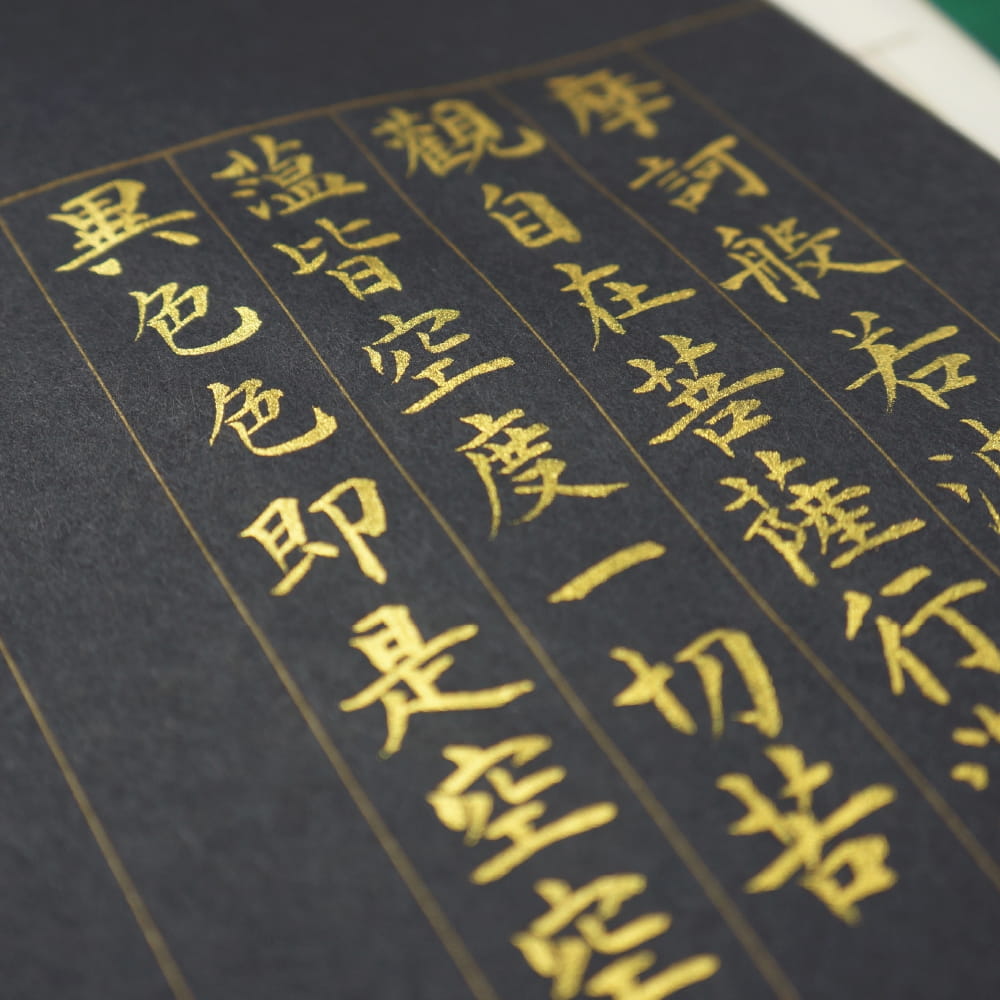 摩訶般若波
觀自在菩薩行
蘊皆空度一切苦
異色色即是空空